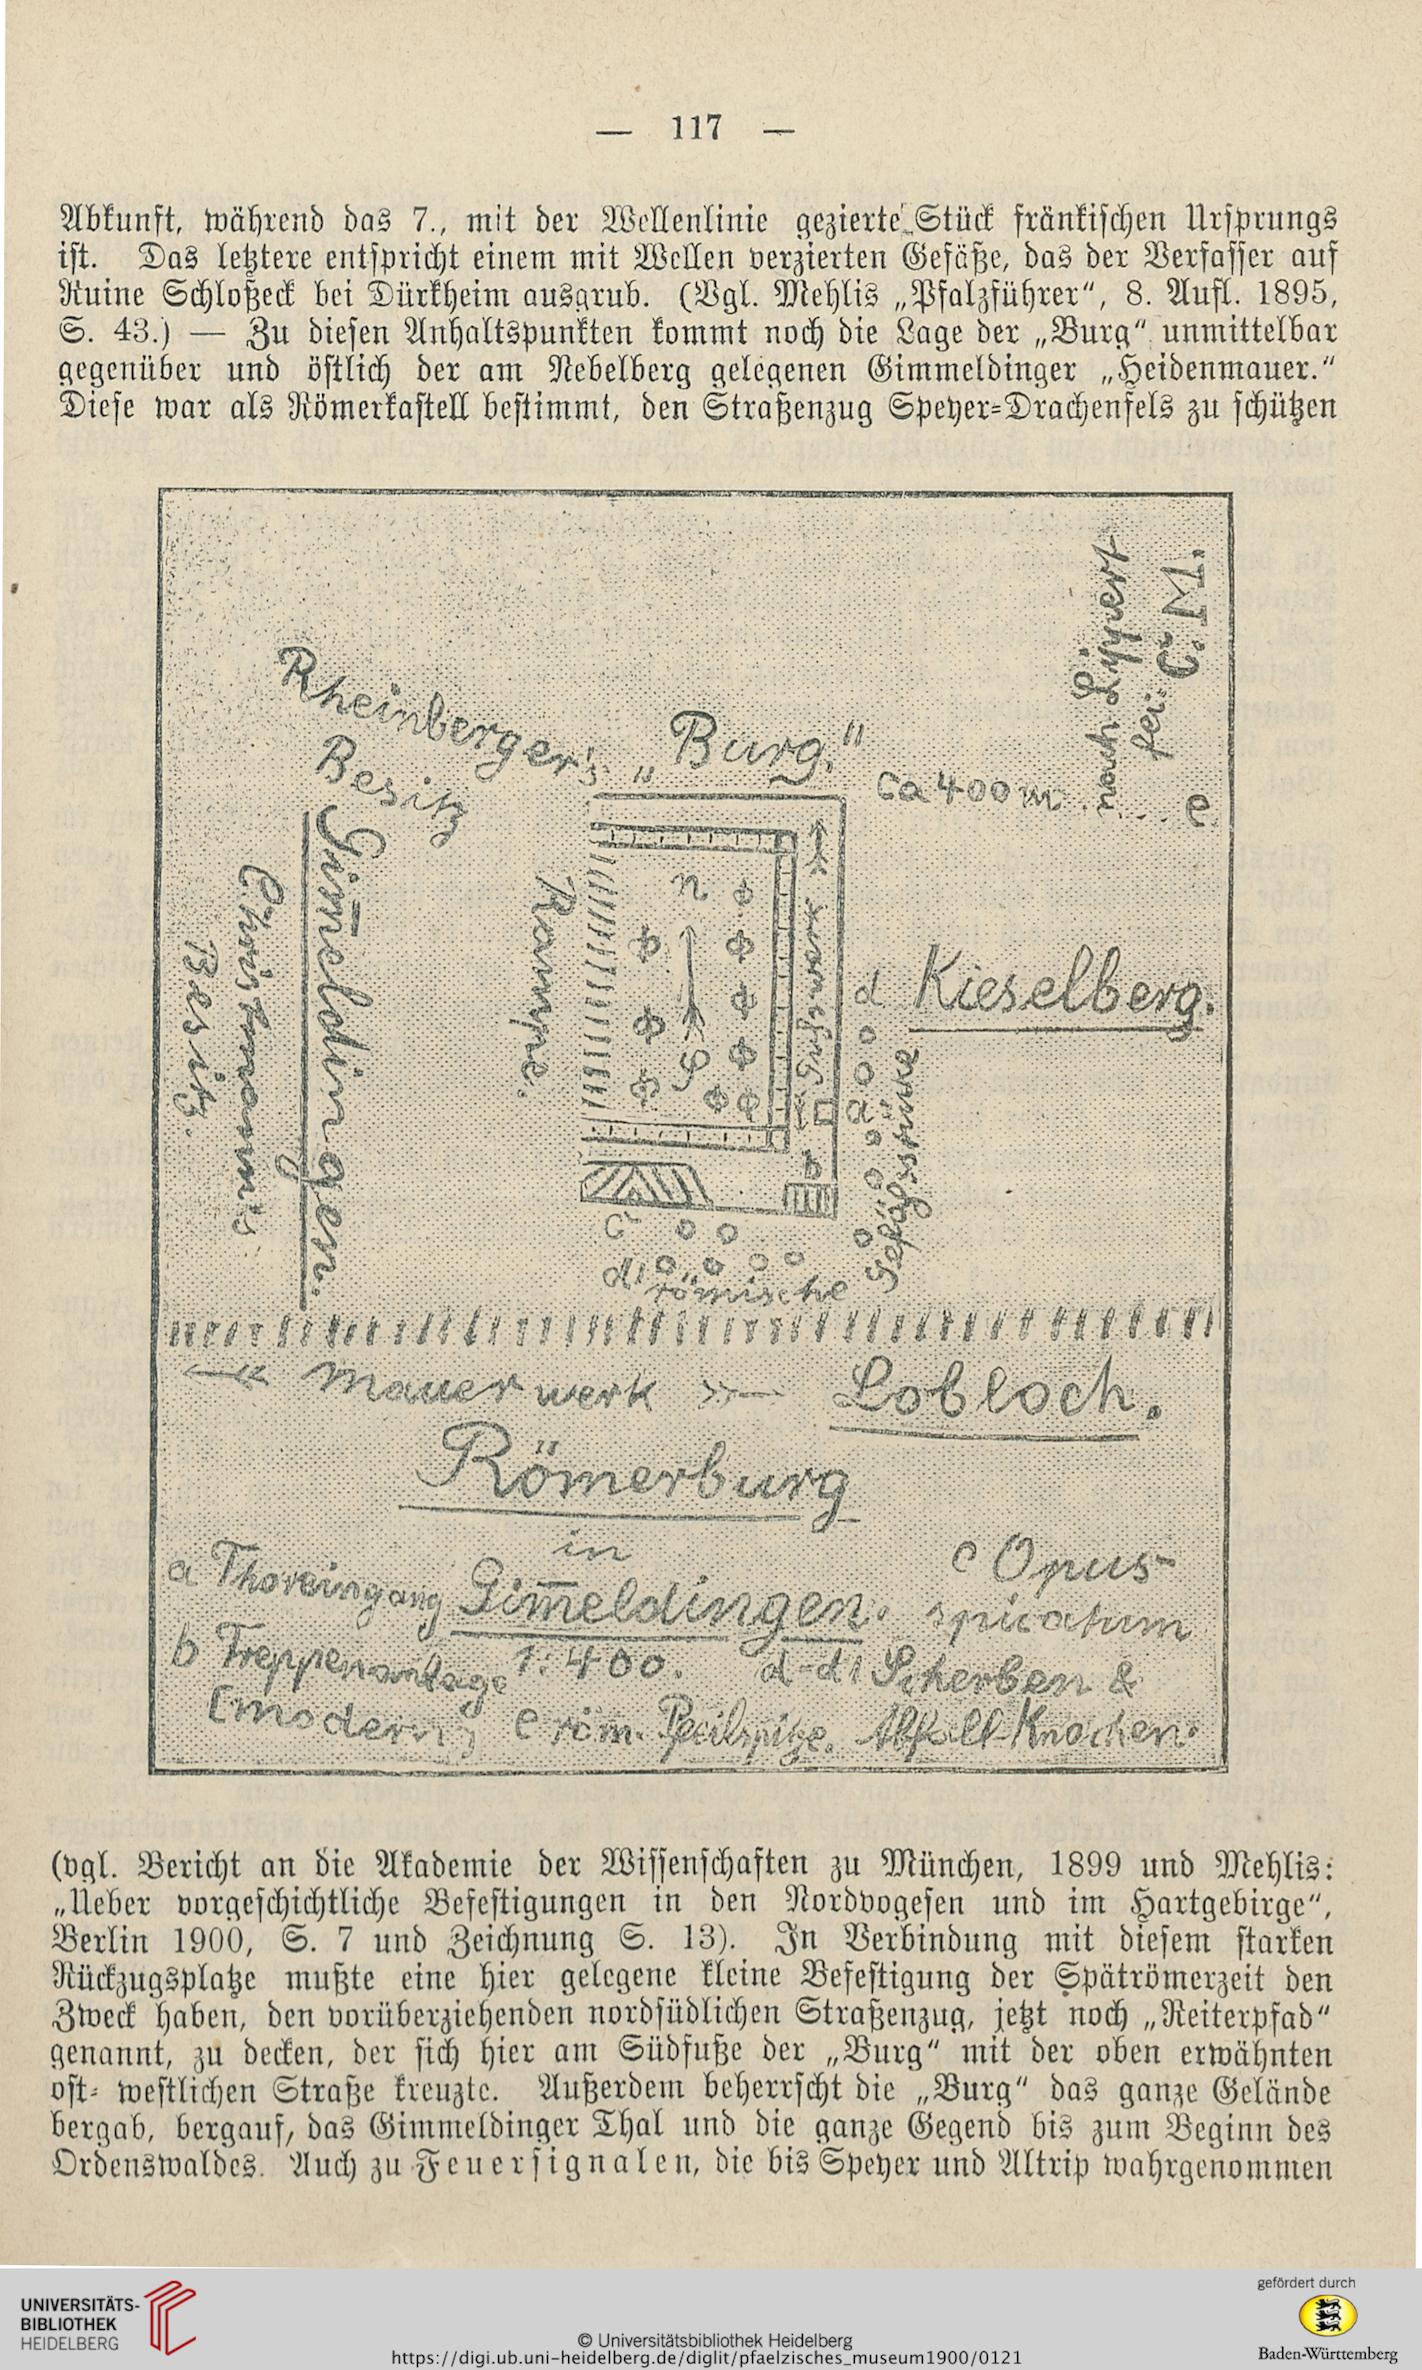 — 117 —
Abkunft, während das 7., mit der Wellenlinie gezierte Stück fränkischen Ursprungs
ist. Das letztere entspricht einem mit Wellen verzierten Gefäße, das der Verfasser auf
Ruine Schloßeck bei Dürkheim ausgrub. (Vgl. Mehlis „Pfalzführer“, 8. Aufl. 1895,
S. 43.) — Zu diesen Anhaltspunkten kommt noch die Lage der „Burg“ unmittelbar
gegenüber und östlich der am Nebelberg gelegenen Gimmeldinger „Heidenmauer.“
Diese war als Römerkastell bestimmt, den Straßenzug Speyer-Drachenfels zu schützen
nach Lippert
fei: C. M.
Rheinberger's
Besitz
„Burg.“
ca 400 m
e
Gim̅eldingen.
Christmann's
Besitz.
Rampe.
n
S
Gußwerk
d
Kieselberg.
a
b
Gefäßstücke
c
d1
römische
Mauerwerk
Lobloch.
Römerburg
in
Gim̅eldingen.
1:400.
a Thoreingang
b Treppenanlage
(modern)
c Opus
spicatum
d-d1 Scherben &
Abfall-Knochen.
e röm. Pfeilspitze.
(vgl. Bericht an die Akademie der Wissenschaften zu München, 1899 und Mehlis:
„Ueber vorgeschichtliche Befestigungen in den Nordvogesen und im Hartgebirge“,
Berlin 1900, S. 7 und Zeichnung S. 13). In Verbindung mit diesem starken
Rückzugsplatze mußte eine hier gelegene kleine Befestigung der Spätrömerzeit den
Zweck haben, den vorüberziehenden nordsüdlichen Straßenzug, jetzt noch „Reiterpfad“
genannt, zu decken, der sich hier am Südfuße der „Burg“ mit der oben erwähnten
ost- westlichen Straße kreuzte. Außerdem beherrscht die „Burg“ das ganze Gelände
bergab, bergauf, das Gimmeldinger Thal und die ganze Gegend bis zum Beginn des
Ordenswaldes. Auch zu Feuersignalen, die bis Speyer und Altrip wahrgenommen
UNIVERSITÄTS-
BIBLIOTHEK
HEIDELBERG
© Universitätsbibliothek Heidelberg
https://digi.ub.uni-heidelberg.de/diglit/pfaelzisches_museum1900/0121
gefördert durch
Baden-Württemberg